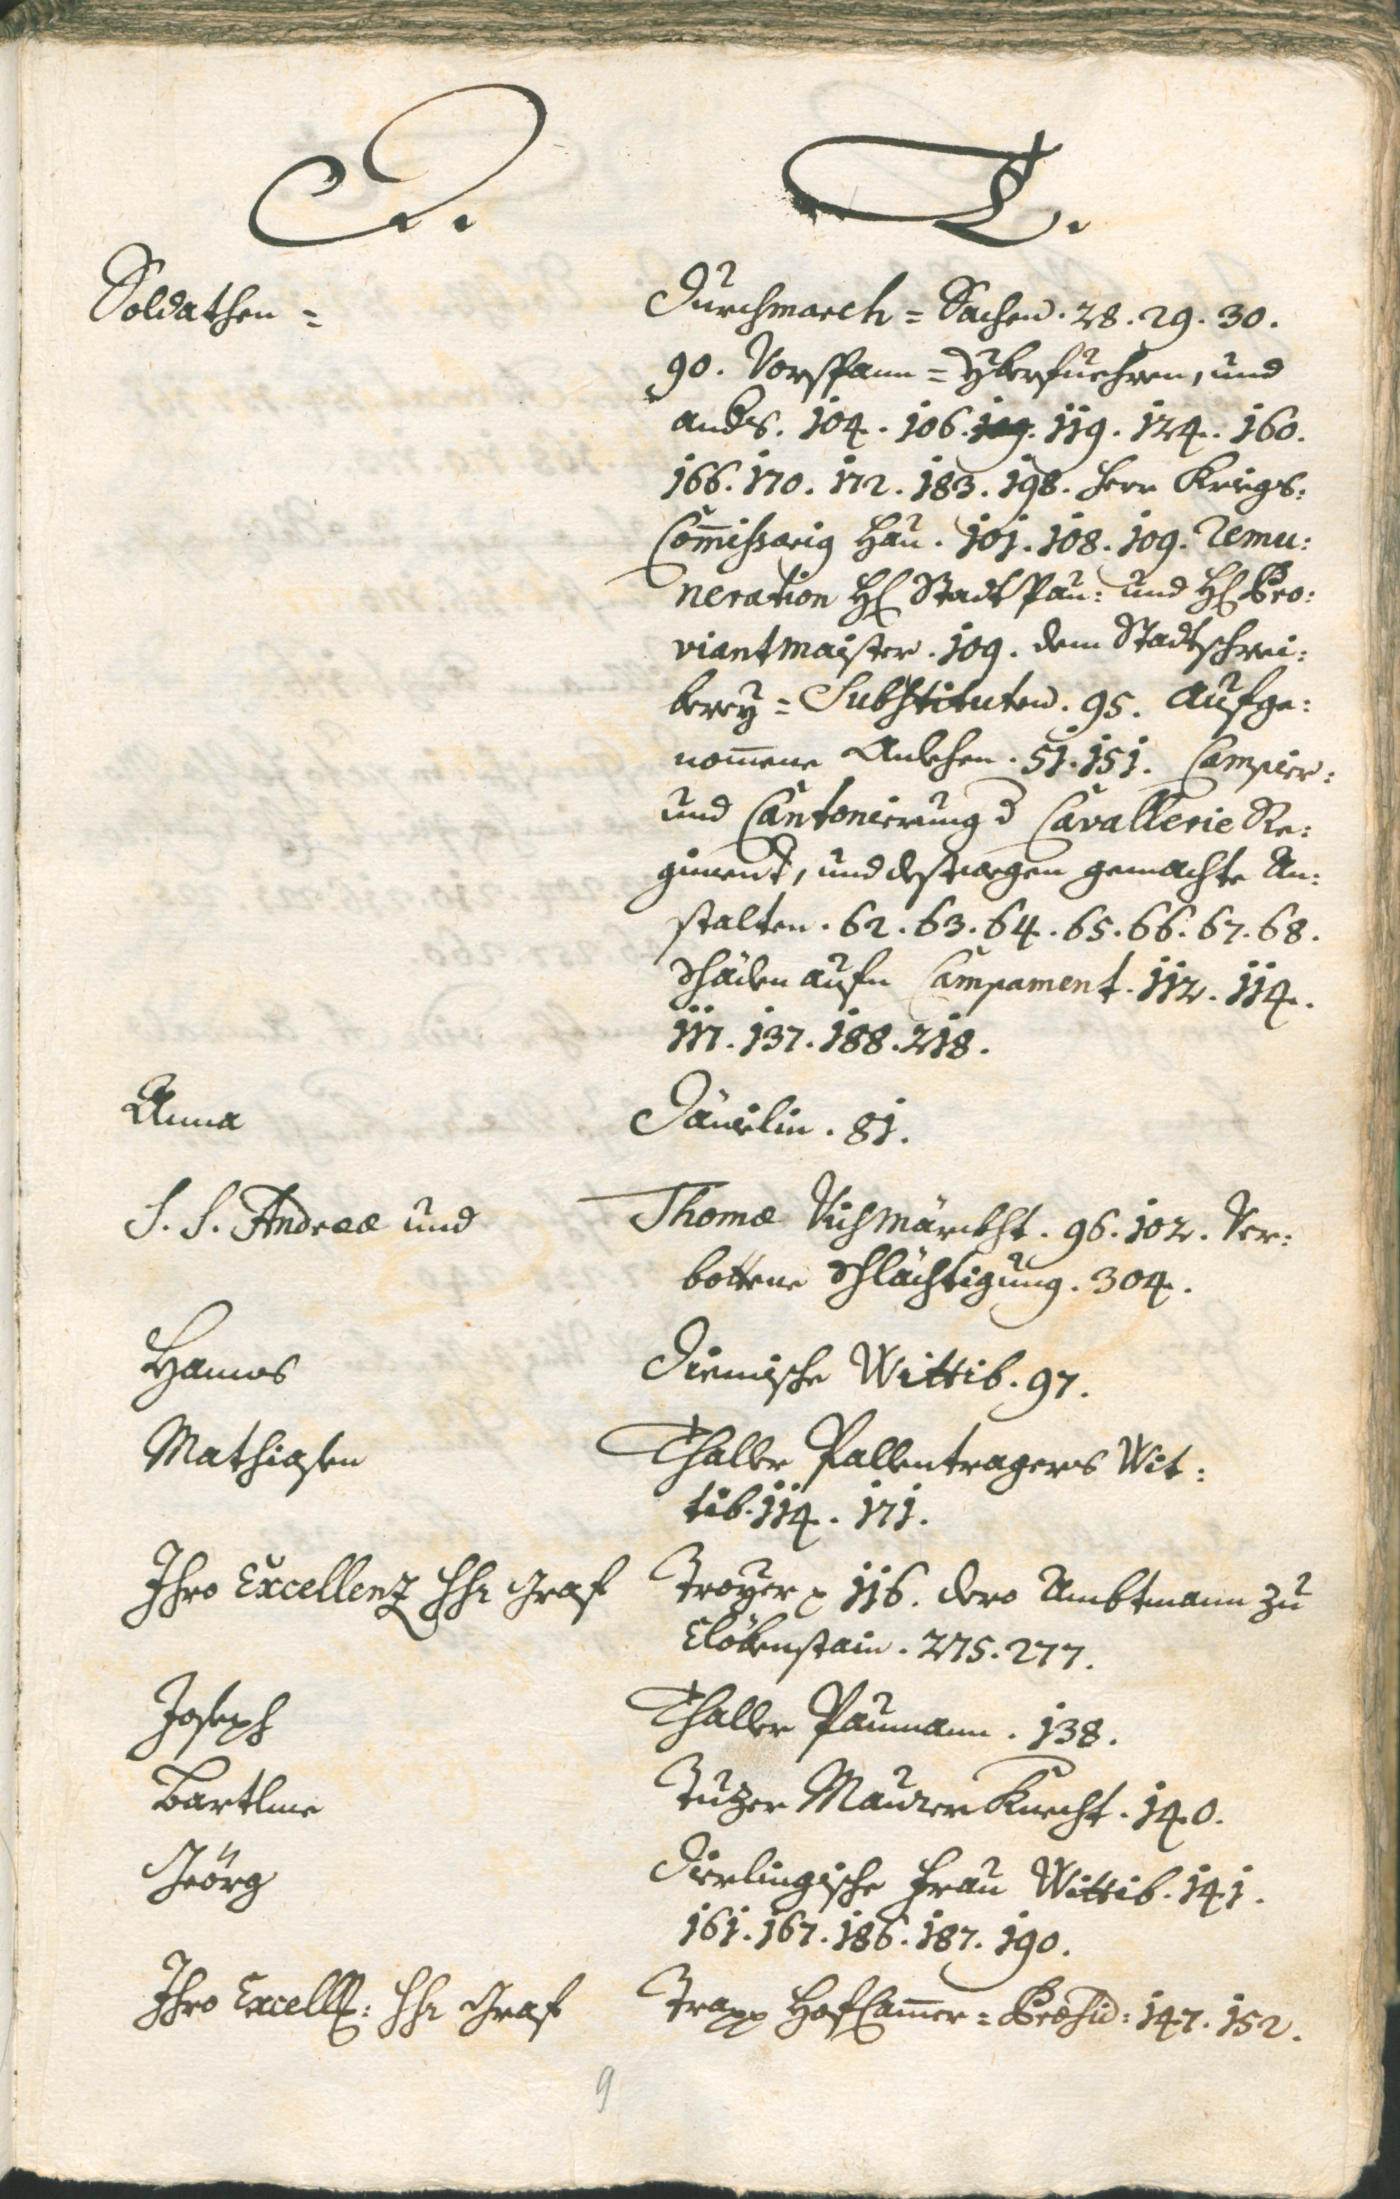 D. T.
Soldathen = Durchmarch = Sachen. 28. 29. 30.
90. Vorspann = yberfuehren, und
anders. 104. 106. 109. 119. 124. 160.
166. 170. 172. 183. 198. Herr Kriegs:
Commissarig Hau. 101. 108. 109. Remu:
neration H: Stadt Pau: und H: Pro:
viantmaister. 109. dem Stadtschrei:
berey = Substituten. 95. Aufge:
nommene Anlehen. 51. 151. Campier:
und Cantonierung d Cavallerie Re:
giment, und destwegen gemachte An:
stalten. 62. 63. 64. 65. 66. 67. 68.
Schäden aufn Campament. 112. 114.
117. 137. 188. 218.
Anna Däuslin. 81.
S. S. Andreæ und Thomæ Vichmärckht. 96. 102. Ver:
bottene Schlächtigung. 304.
Hannos Diemische Wittib. 97.
Mathiasen Thaller Pallentragers Wit:
tib. 114. 171.
Ihro Excellenz Graf Troyer 116. dero Ambtmann zu
275. 277.
Joseph Thaller Paumann. 138.
Bartlme Tuzer Maurer Knecht. 140.
Geörg Dierlingische Frau Wittib. 141.
161. 167. 186. 187. 190.
Ihro Excell: Graf Trapp HofCammer = Præsid: 147. 152.
9